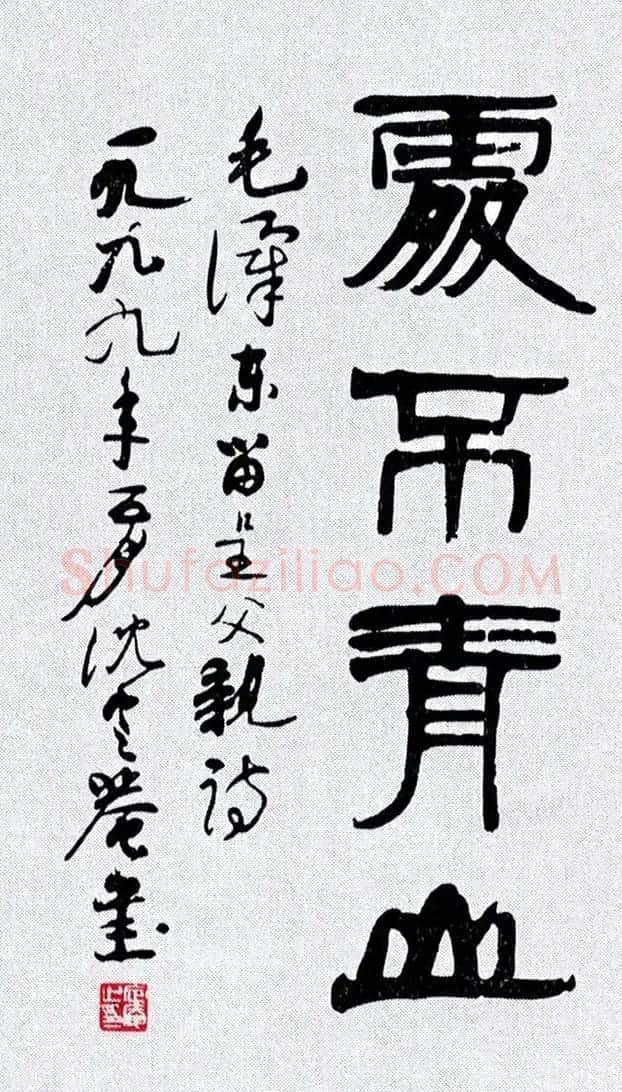 處不青山
毛澤东留呈父親诗
一九九九年夏沈定庵書
Shufaziliao.COM